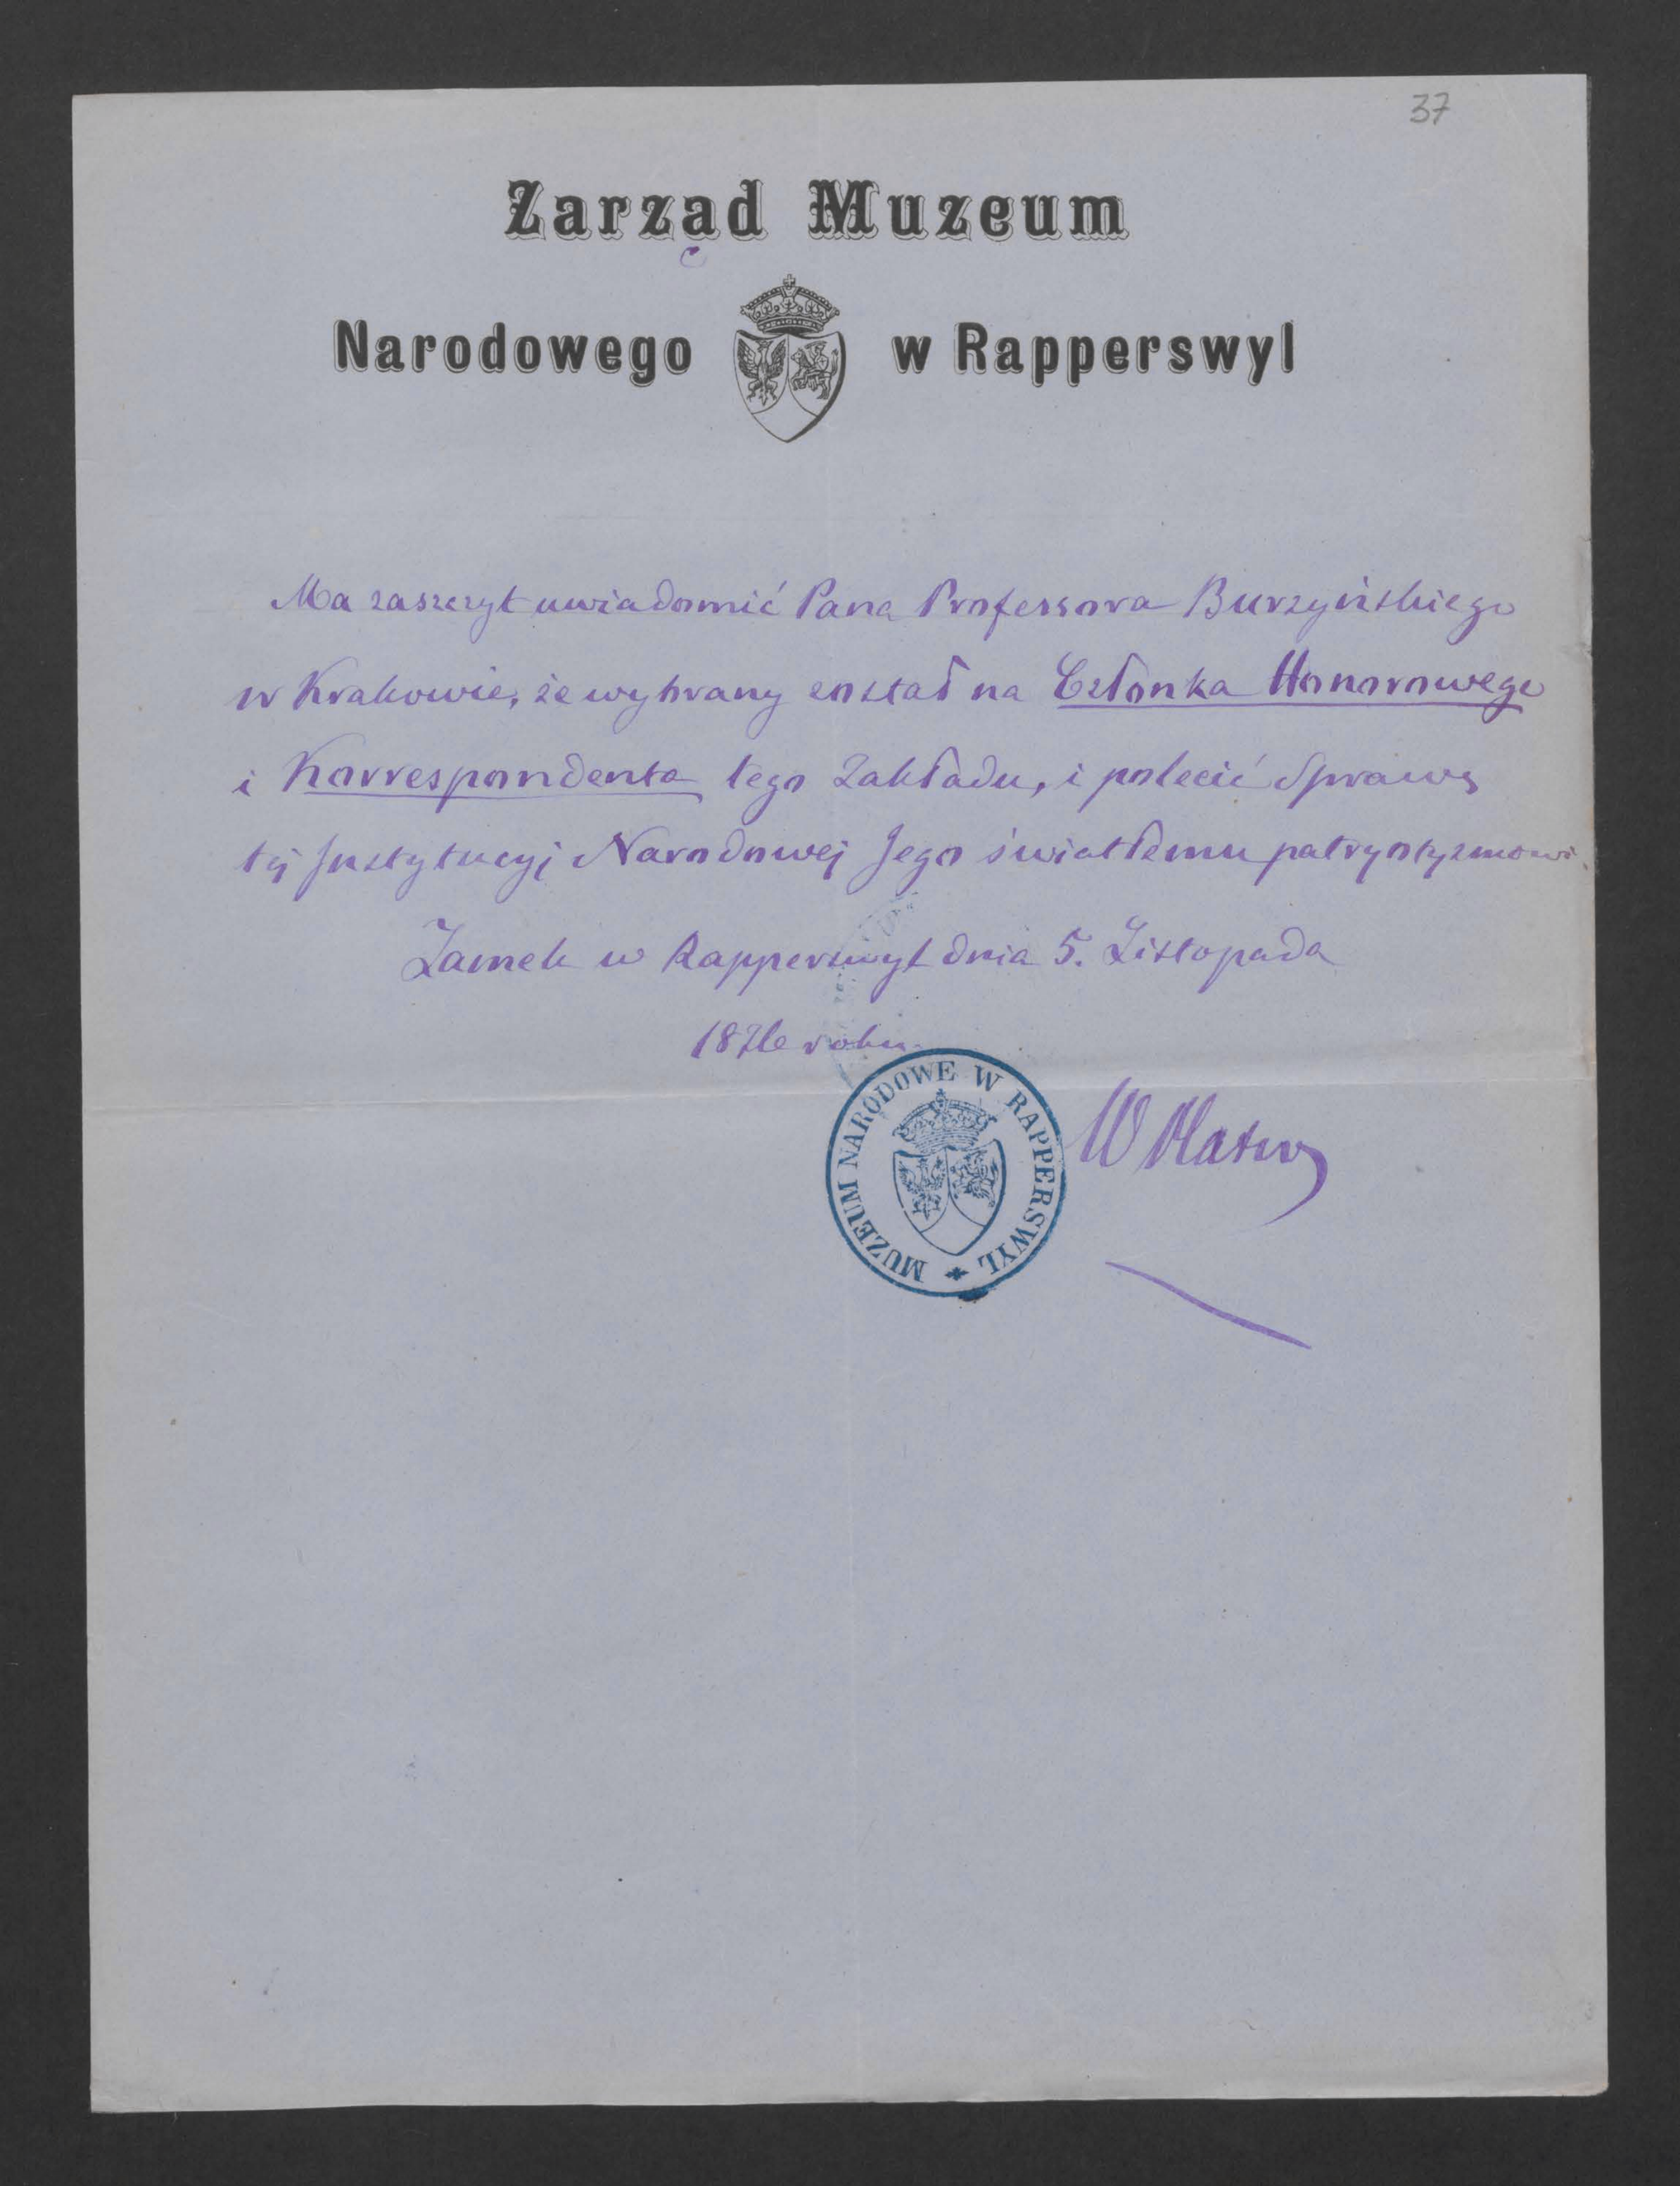 37
Zarząd Muzeum
Narodowego w Rapperswyl
Ma zaszczyt uwiadomić Pana Professora Burzyńskiego
w Krakowie, że wybrany został na Członka Honorowego
i Korrespondenta tego Zakładu, i polecić Sprawę
téj Instytucyi Narodowej Jego światłemu patryotyzmowi.
Zamek w Rapperswyl dnia 5. Listopada
1876 roku
MUZEUM NARODOWE W RAPPERSWYL
W Plater